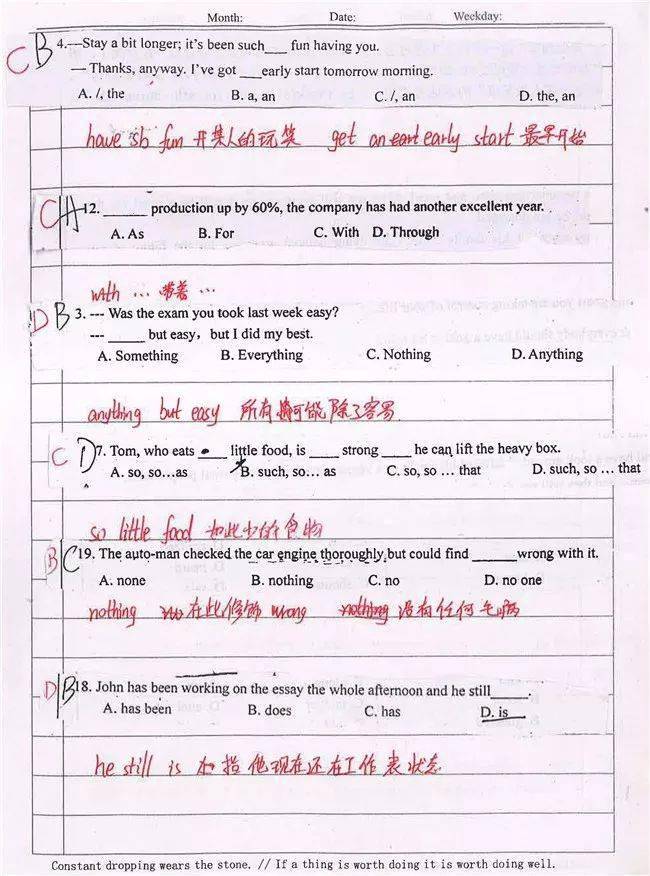 Month: Date: Weekday:
C B 4.---Stay a bit longer; it's been such___ fun having you.
— Thanks, anyway. I've got ___early start tomorrow morning.
A. /, the B. a, an C. /, an D. the, an
have sb fun 开某人的玩笑 get an eart early start 最早开始
C A 12. ______ production up by 60%, the company has had another excellent year.
A. As B. For C. With D. Through
with … 带着 …
D B 3. --- Was the exam you took last week easy?
--- _____ but easy, but I did my best.
A. Something B. Everything C. Nothing D. Anything
anything but easy 所有 可能除了容易
C D 7. Tom, who eats ____ little food, is ____ strong ____ he can lift the heavy box.
A. so, so…as B. such, so… as C. so, so … that D. such, so … that
so little food 如此少的食物
B C 19. The auto-man checked the car engine thoroughly,but could find ______wrong with it.
A. none B. nothing C. no D. no one
nothing no 在此修饰 wrong nothing 没有任何毛病
D B 18. John has been working on the essay the whole afternoon and he still_____.
A. has been B. does C. has D. is
he still is 指他现在还在工作 表状态
Constant dropping wears the stone. // If a thing is worth doing it is worth doing well.